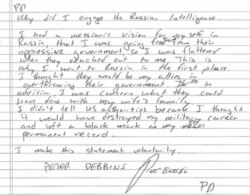 PD
Why did I engage the Russian Intelligence
I had a messianic vision for myself in
Russia, that I was going free them from their
oppressive government, so I was flattered
when they reached out to me. This is
why I went to Russia in the first place.
I thought they would be my allies in
overthrowing their government. In
addition I was concern what they could
have done with my wife's family.
I didn't tell US authorities because I thought
it would have destroyed my military career
and left a black mark on my
permanent record
I make this statement voluntarily.
PETER DEBBINS
PD